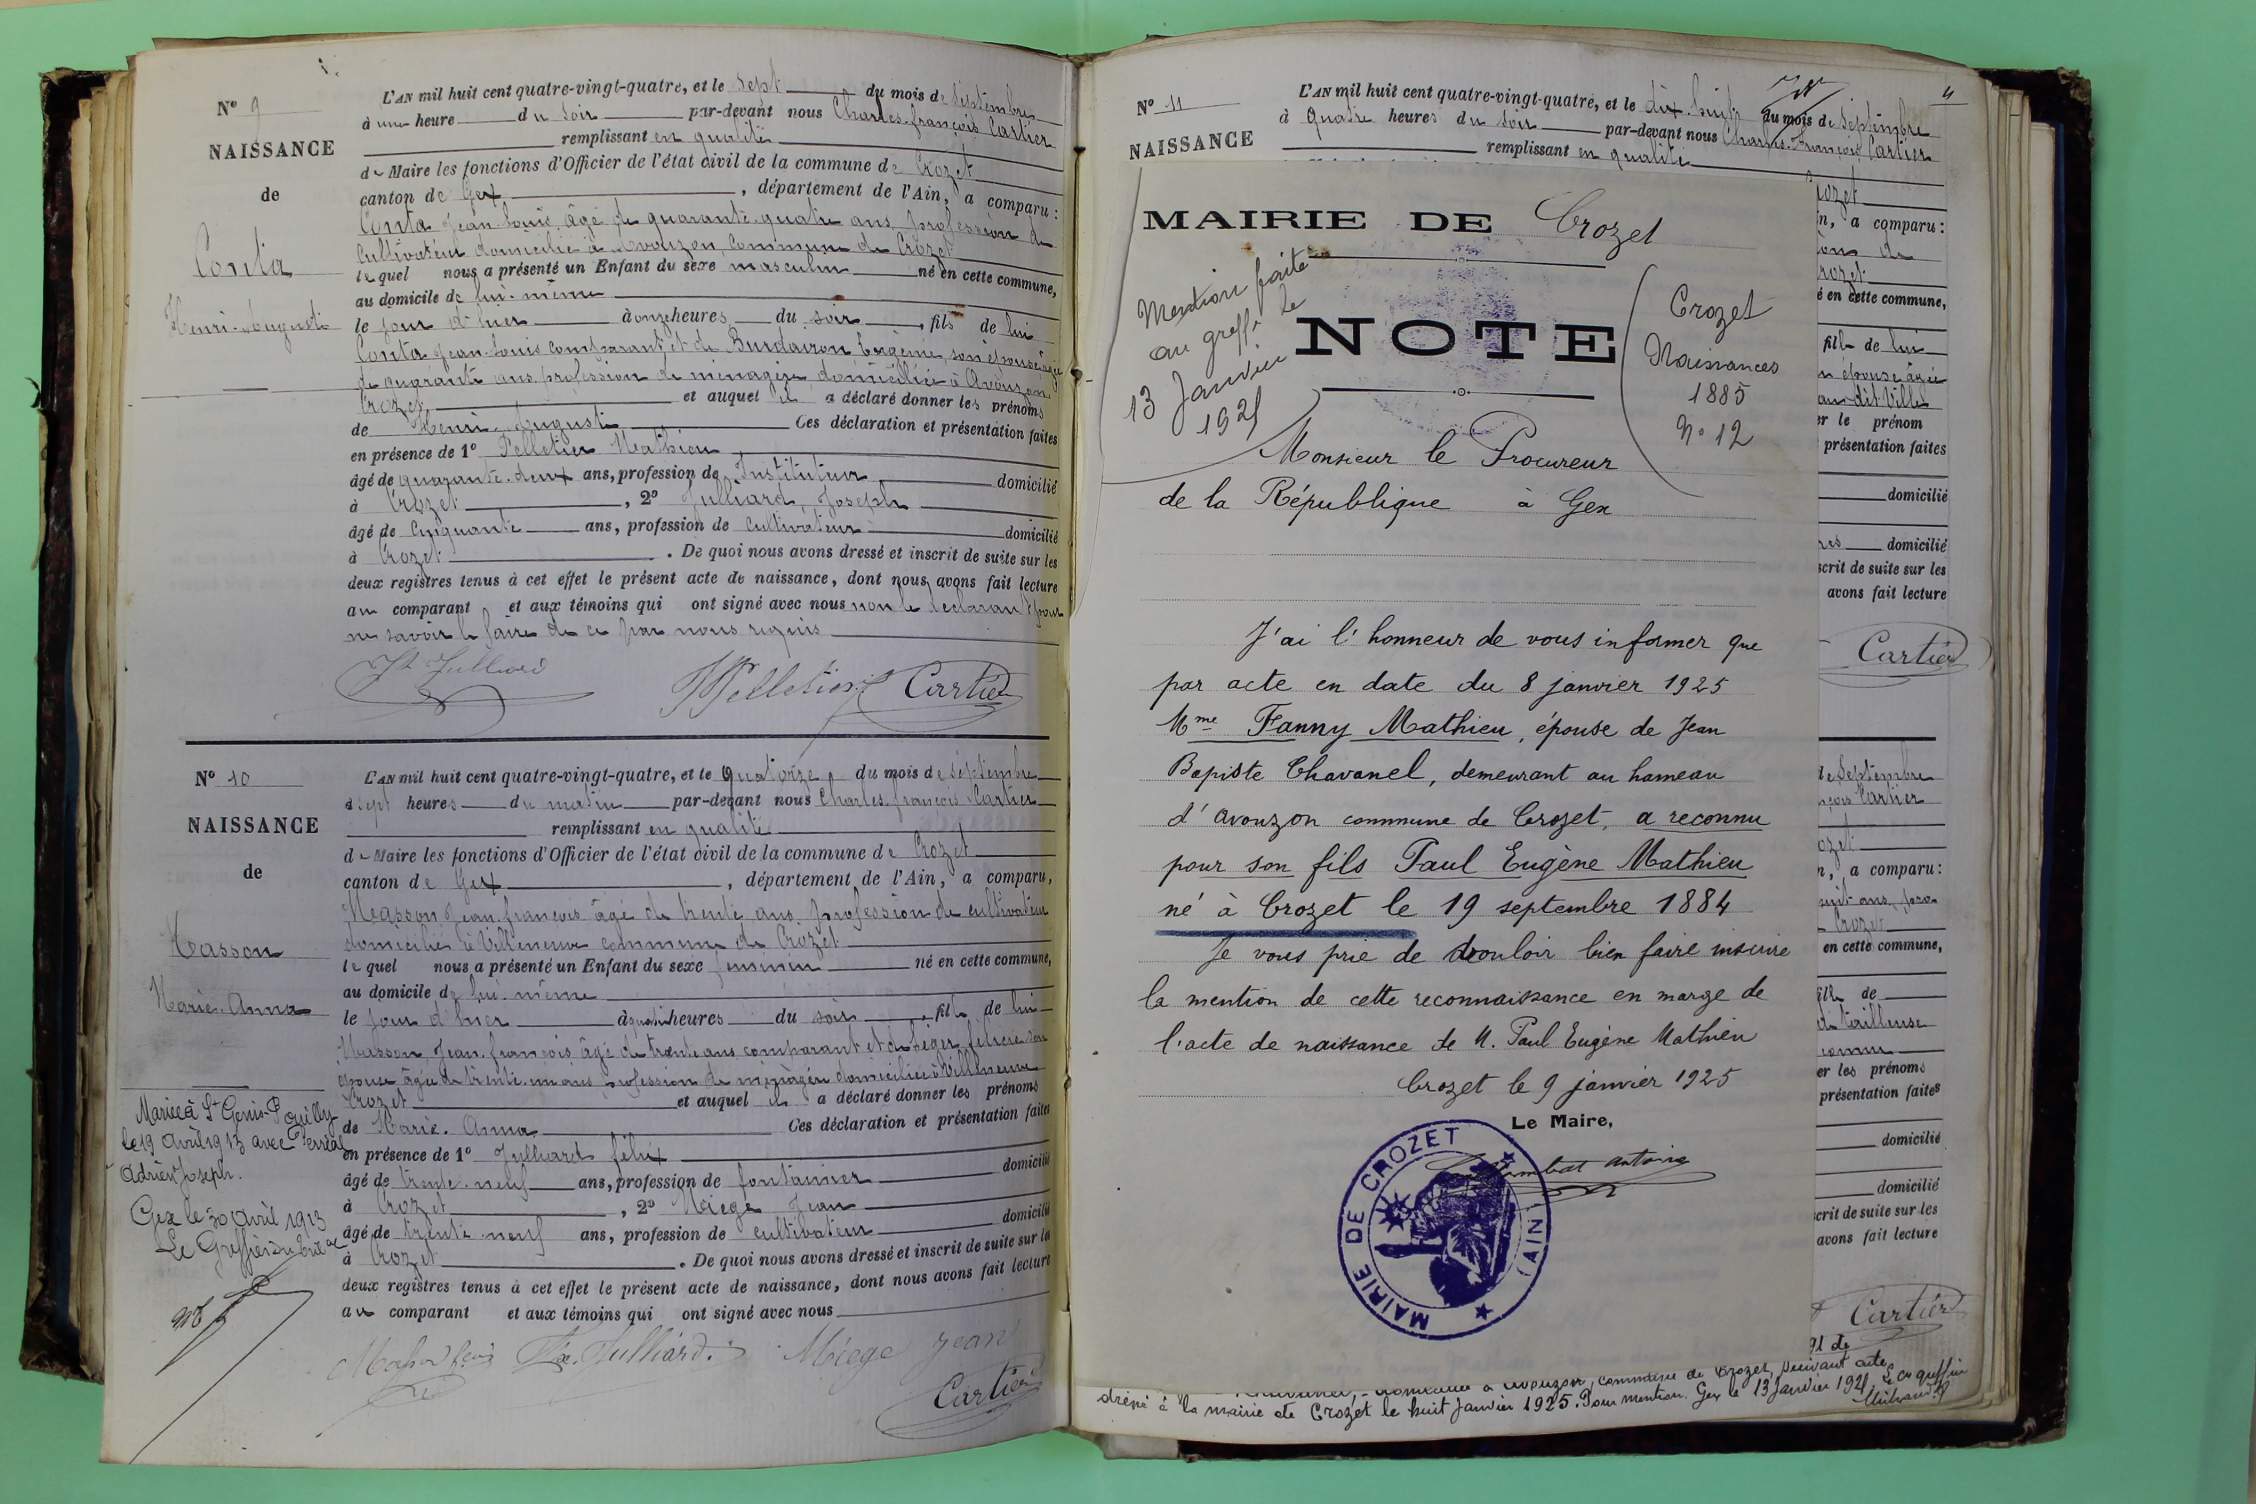 N° 9
NAISSANCE
de
Conta
Henri-Auguste
L'AN mil huit cent quatre-vingt-quatre, et le sept du mois de septembre
à une heure du soir par-devant nous Charles-françois Cartier
remplissant en qualité
de Maire les fonctions d'Officier de l'état civil de la commune de Crozet
canton de Gex, département de l'Ain, a comparu :
Conta Jean-Louis âgé de quarante-quatre ans, profession de
cultivateur domicilié à Avouzon, commune de Crozet
lequel nous a présenté un Enfant du sexe masculin né en cette commune,
au domicile de lui-même
le jour d'hier à onze heures du soir, fils de lui
Conta Jean-Louis comparant et de Burdairon Eugénie, son épouse âgée
de quarante ans, profession de ménagère domiciliée à Avouzon
Crozet et auquel il a déclaré donner les prénoms
de Henri-Auguste Ces déclaration et présentation faites
en présence de 1° Pelletier Mathieu
âgé de quarante-deux ans, profession de Instituteur domicilié
à Crozet, 2° Julliard, Joseph
âgé de cinquante ans, profession de cultivateur domicilié
à Crozet. De quoi nous avons dressé et inscrit de suite sur les
deux registres tenus à cet effet le présent acte de naissance, dont nous avons fait lecture
au comparant et aux témoins qui ont signé avec nous non le déclarant pour
ne savoir le faire de ce par nous requis
Jh Julliard Pelletier Cartier
N° 10
NAISSANCE
de
Masson
Marie-Anna
L'AN mil huit cent quatre-vingt-quatre, et le quatorze du mois de septembre
à sept heures du matin par-devant nous Charles-françois Cartier
remplissant en qualité
de Maire les fonctions d'Officier de l'état civil de la commune de Crozet
canton de Gex, département de l'Ain, a comparu,
Masson Jean-françois âgé de trente ans, profession de cultivateur
domicilié à Villeneuve commune de Crozet
lequel nous a présenté un Enfant du sexe féminin né en cette commune,
au domicile de lui-même
le jour d'hier à quatre heures du soir, fille de lui
Masson Jean-françois âgé de trente ans, comparant et de Léger félicie son
épouse âgée de trente-un ans profession de ménagère domiciliée à Villeneuve
Crozet et auquel il a déclaré donner les prénoms
de Marie-Anna Ces déclaration et présentation faites
en présence de 1° Julliard félix
âgé de trente-neuf ans, profession de fontainier domicilié
à Crozet, 2° Miège Jean
âgé de trente-neuf ans, profession de cultivateur domicilié
à Crozet. De quoi nous avons dressé et inscrit de suite sur les
deux registres tenus à cet effet le présent acte de naissance, dont nous avons fait lecture
au comparant et aux témoins qui ont signé avec nous
Julliard Miege Jean
Cartier
Mariée à St Genis-Pouilly
le 19 avril 1913 avec
Adrien Joseph.
Gex le 30 avril 1913
Le Greffier du
4
N° 11
NAISSANCE
L'AN mil huit cent quatre-vingt-quatre, et le dix-huit du mois de septembre
à quatre heures du soir par-devant nous Charles-François Cartier
remplissant en qualité
MAIRIE DE Crozet
Mention faite
au greffe le
13 Janvier
1925
NOTE
Crozet
Naissances
1885
N° 12
Monsieur le Procureur
de la République à Gex
J'ai l'honneur de vous informer que
par acte en date du 8 janvier 1925
Mme Fanny Mathieu, épouse de Jean
Bapiste Chavanel, demeurant au hameau
d'avouzon commune de Crozet, a reconnu
pour son fils Paul Eugène Mathieu
né à Crozet le 19 septembre 1884
Je vous prie de vouloir bien faire inscrire
la mention de cette reconnaissance en marge de
l'acte de naissance de M. Paul Eugène Mathieu
Crozet le 9 janvier 1925
Le Maire,
antoine
MAIRIE DE CROZET (AIN)
rozet
n, a comparu :
on de
rozet
é en cette commune,
fille de lui
n épouse âgée
au dit Ville
er le prénom
présentation faites
domicilié
res domicilié
scrit de suite sur les
avons fait lecture
Cartier
de Septembre
nçois Cartier
ozet
n, a comparu :
Crozet
en cette commune,
fille de
de tailleuse
er les prénoms
présentation faites
domicilié
domicilié
crit de suite sur les
avons fait lecture
Cartier
domiciliée à Avouzon, commune de Crozet, suivant acte
dressé à la mairie de Crozet le huit Janvier 1925. Pour mention. Gex le 13 Janvier 1925, Le greffier